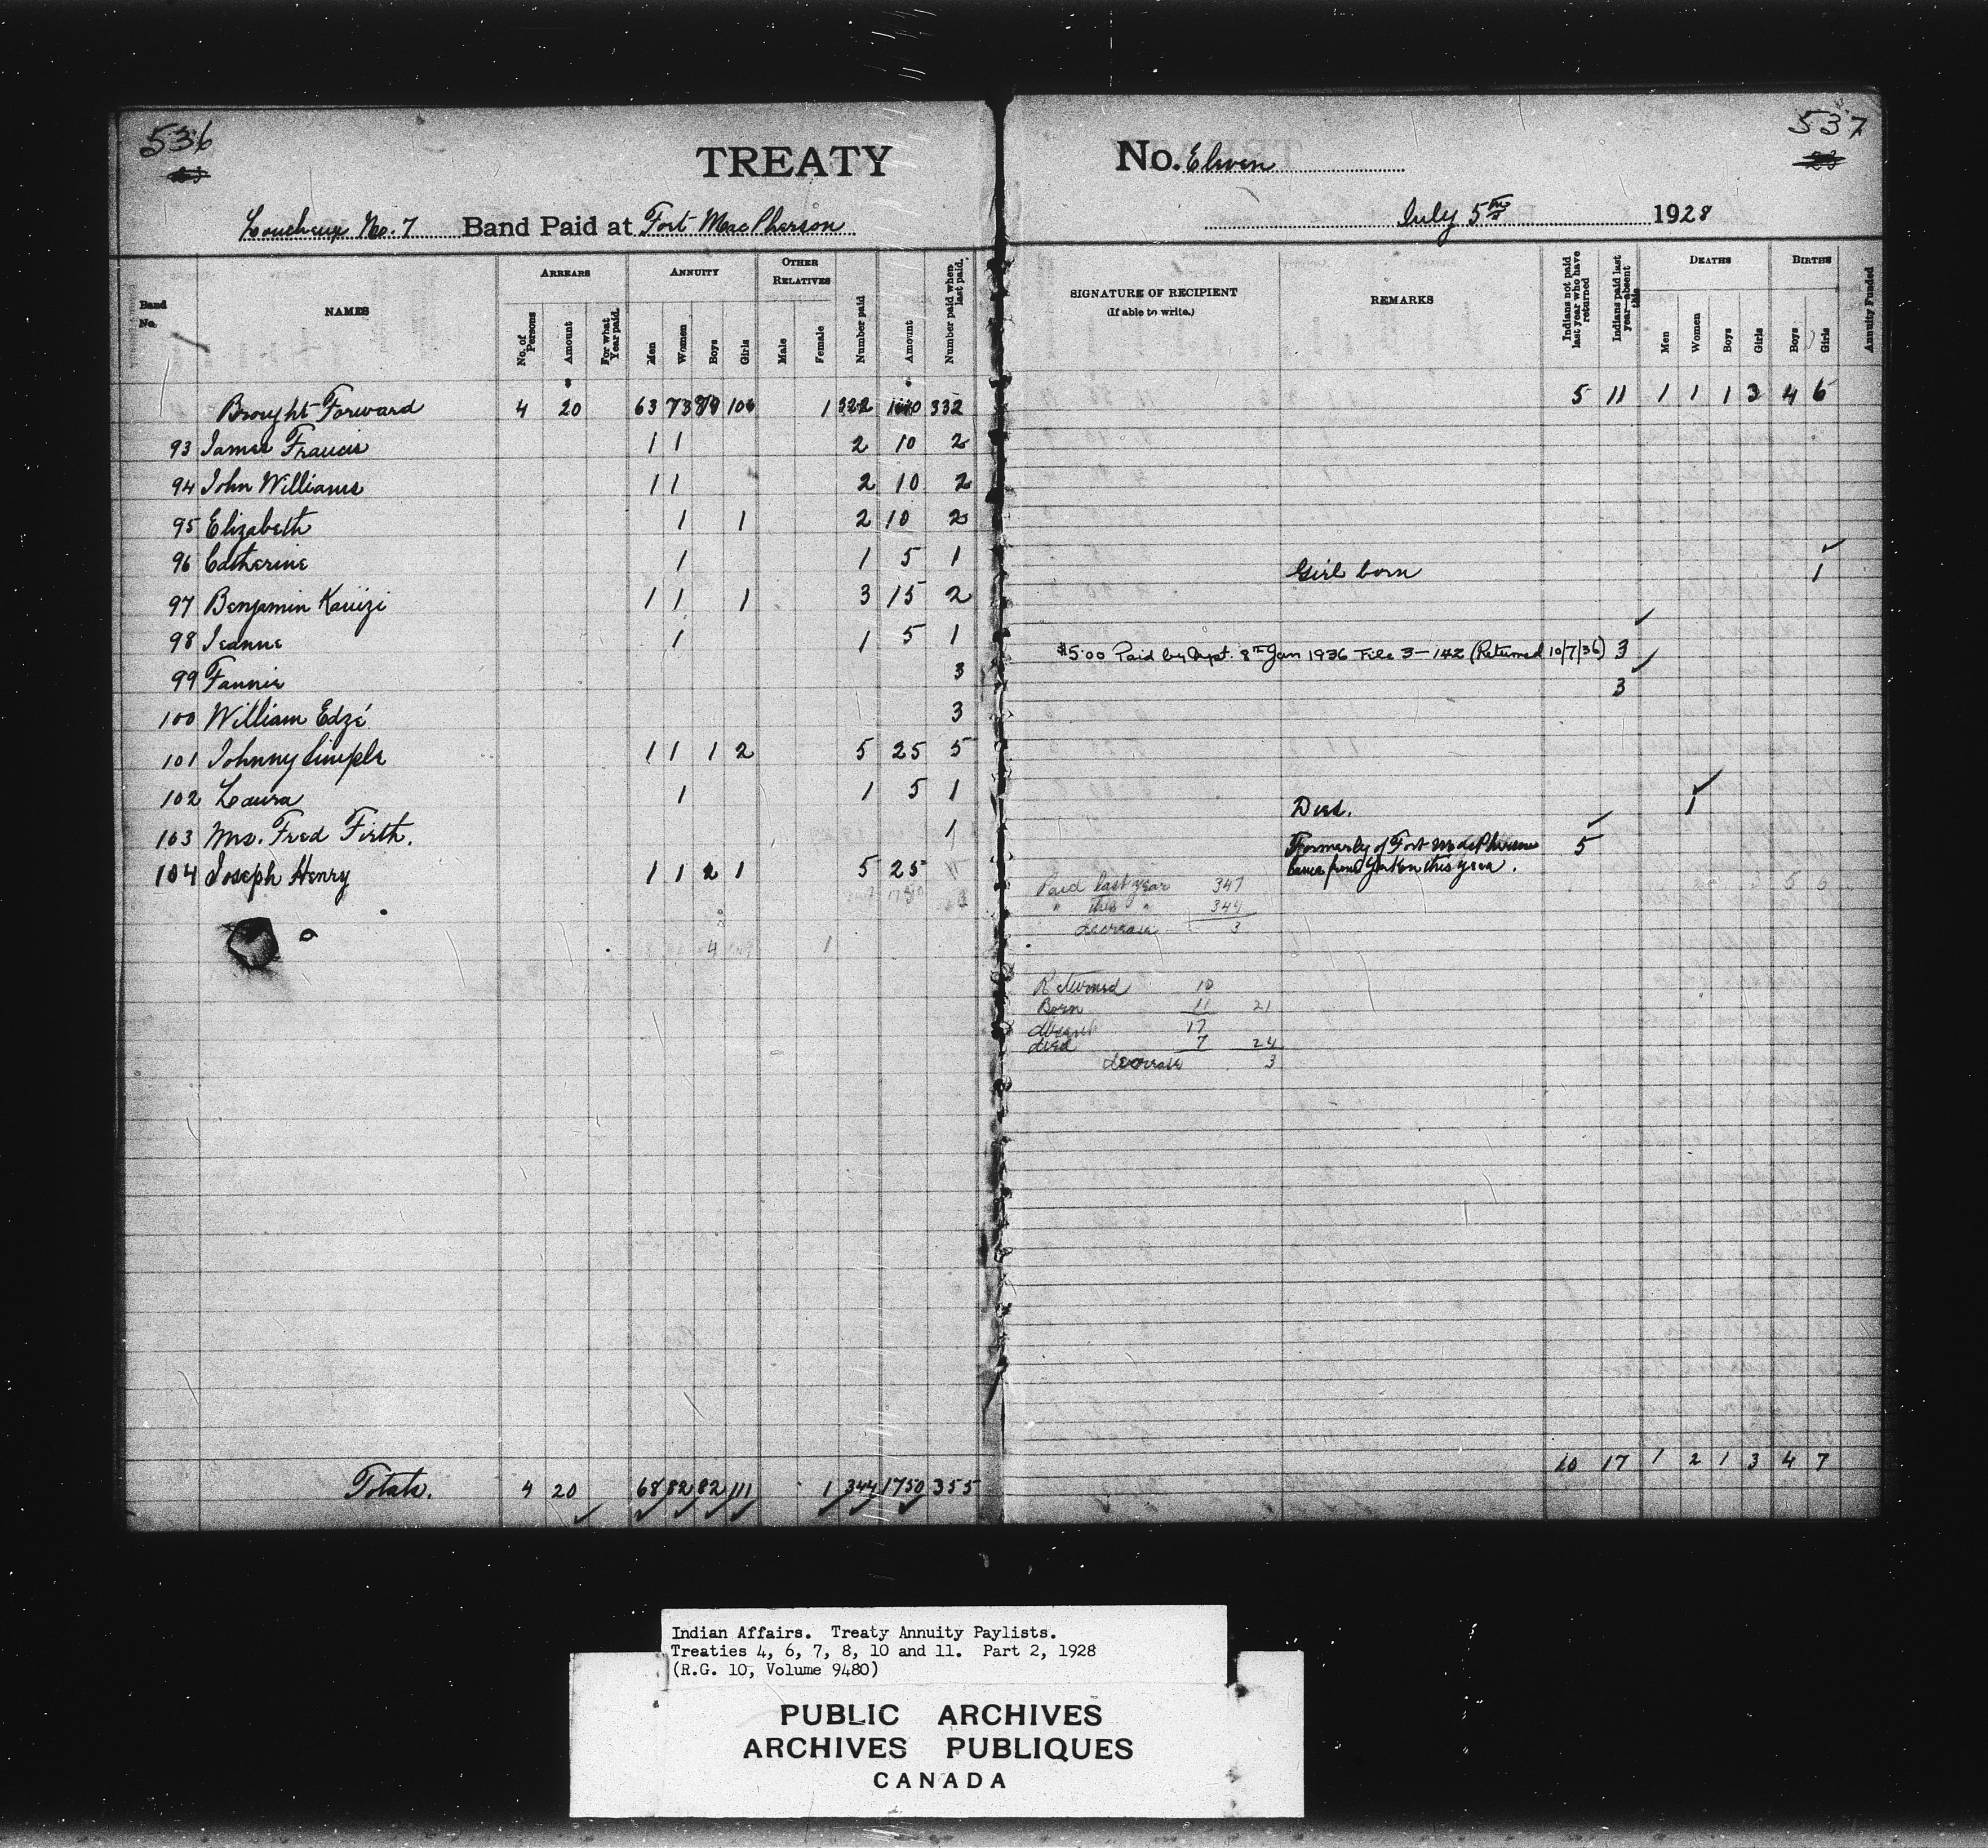 536
TREATY
Loucheux No. 7 Band Paid at Fort MacPherson
Band No.
NAMES
ARREARS
ANNUITY
OTHER RELATIVES
No. of Persons
Amount
For what Year paid.
Men
Women
Boys
Girls
Male
Female
Number paid
Amount
Number paid when last paid.
Brought Forward 4 20 63 73 79 106 1 322 332
93 James Francis 1 1 2 10 2
94 John Williams 1 1 2 10 2
95 Elizabeth 1 1 2 10 2
96 Catherine 1 1 5 1
97 Benjamin Kauizi 1 1 1 3 15 2
98 Jeanne 1 1 5 1
99 Fannie 3
100 William Edzé 3
101 Johnny Simple 1 1 1 2 5 25 5
102 Laura 1 1 5 1
103 Mrs. Fred Firth. 1
104 Joseph Henry 1 1 2 1 5 25
Totals. 4 20 68 82 82 111 1 344 1750 355
537
No. Eleven
July 5th 1928
SIGNATURE OF RECIPIENT
(If able to write.)
REMARKS
Indians not paid last year who have returned
Indians paid last year—absent this
DEATHS
BIRTHS
Men
Women
Boys
Girls
Boys
Girls
Annuity Funded
5 11 1 1 1 3 4 6
Girl born 1
$5.00 Paid by Dept. 8th Jan 1936 File 3-142 (Returned 10/7/36) 3
3
Died. 1
Formerly of Fort MacPherson 5
came from Yukon this year.
Paid last year 347
" this " 344
decrease 3
Returned 10
Born 11 21
absent 17
died 7 24
decrease 3
10 17 1 2 1 3 4 7
Indian Affairs. Treaty Annuity Paylists.
Treaties 4, 6, 7, 8, 10 and 11. Part 2, 1928
(R.G. 10, Volume 9480)
PUBLIC ARCHIVES
ARCHIVES PUBLIQUES
CANADA